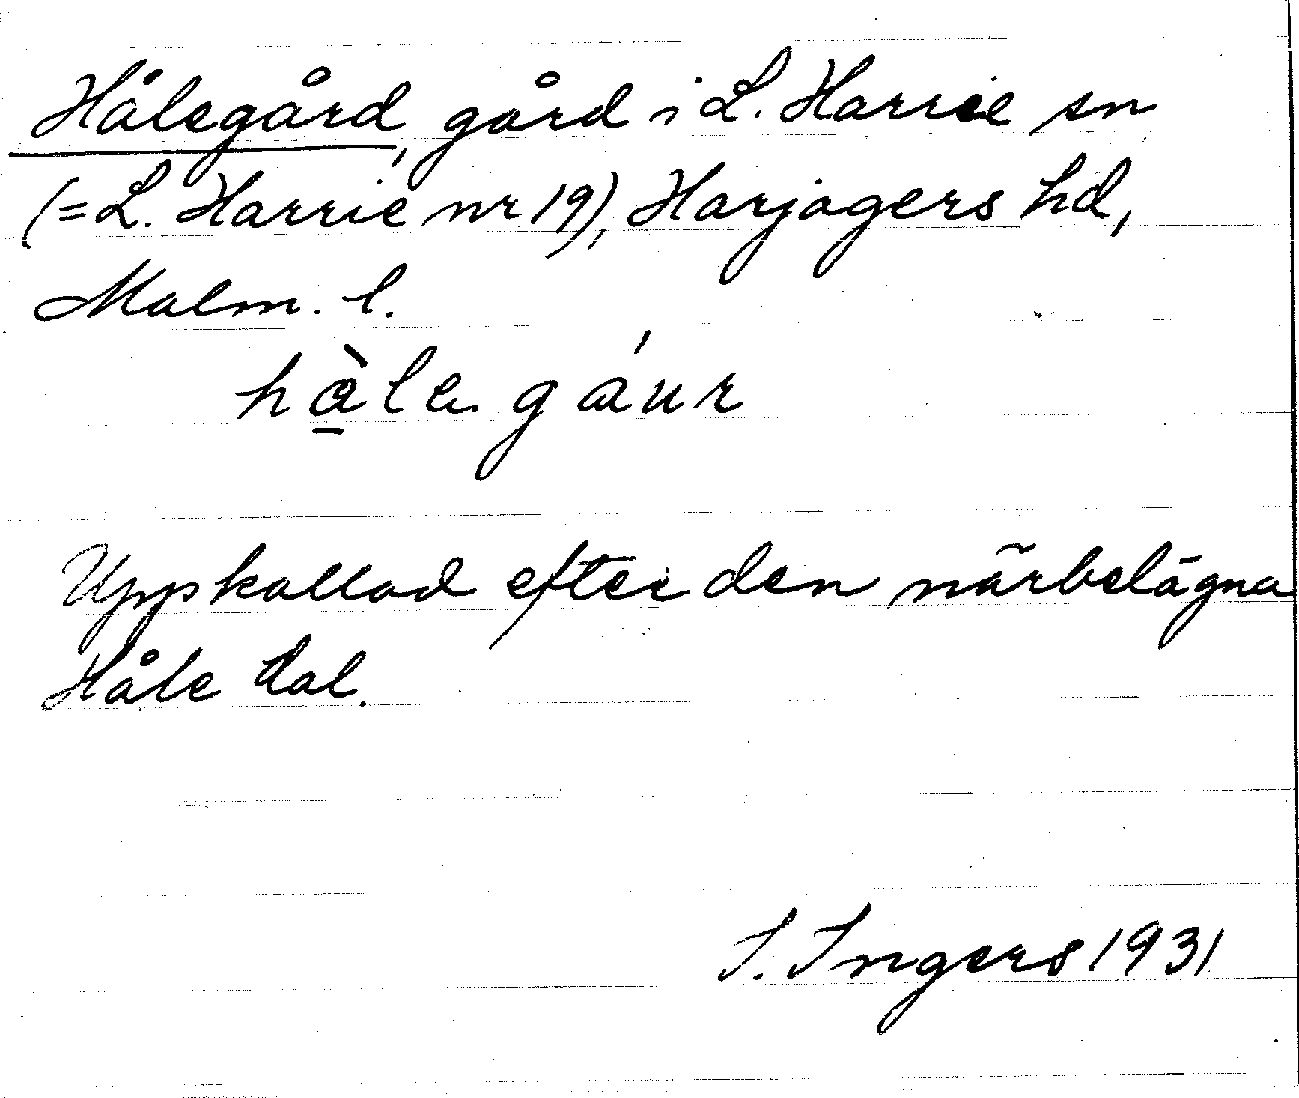 Hålegård, gård i L. Harrie sn
(=L. Harrie nr 19), Harjagers hd,
Malm. l.
hàla gáur
Uppkallad efter den närbelägna
Håle dal.
I. Ingers 1931